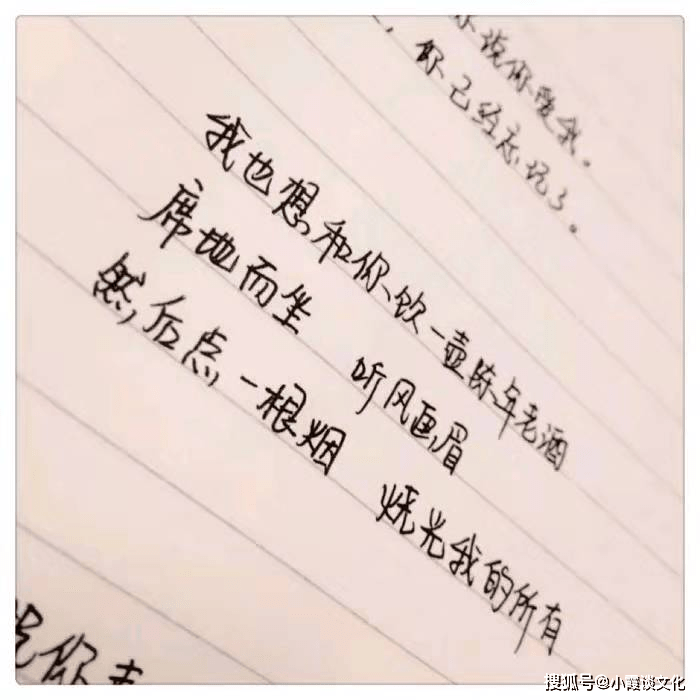 你说你爱我。
，你已经忘记了。
我也想和你饮一壶陈年老酒
席地而坐 听风画眉
然后点一根烟 烧光我的所有
说你
搜狐号@小霞谈文化